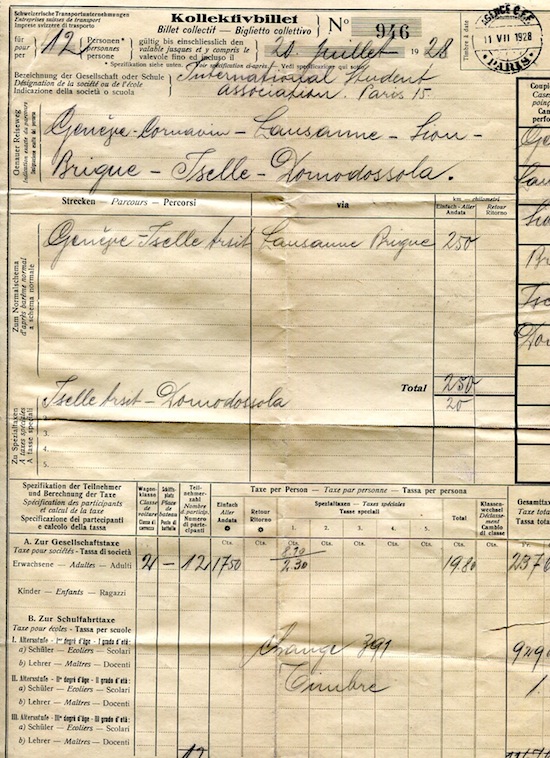 Schweizerische Transportunternehmungen
Entreprises suisses de transport
Imprese svizzere di trasporto
Kollektivbillet
Billet collectif – Biglietto collettivo
Nº 946
AGENCE C.F.F.
11 VII 1928
PARIS
Timbre à date
für
pour
per
12
Personen*
personnes
persone
gültig bis einschliesslich den
valable jusques et y compris le
valevole fino ed incluso il
20 Juillet 1928
* Spezifikation siehe unten. – Voir spécification ci-après. – Vedi specificazione qui sotto.
Bezeichnung der Gesellschaft oder Schule
Désignation de la société ou de l'école
Indicazione della società o scuola
International Student
association. Paris 15.
Genauer Reiseweg
Indication exacte du parcours
Genève-Cornavin – Lausanne – Sion –
Brigue – Iselle – Domodossola.
Strecken Parcours – Percorsi
via
km – chilometri
Einfach - Aller
Andata
Retour
Ritorno
Zum Normalschema
d'après barème normal
a schema normale
Genève-Iselle trsit Lausanne Brigue 250
Total 250
Zu Spezialtaxen
A taxes spéciales
A tasse speciali
Iselle trsit – Domodossola 20
2.
3.
4.
5.
Spezifikation der Teilnehmer
und Berechnung der Taxe
Spécification des participants
et calcul de la taxe
Specificazione dei partecipanti
e calcolo della tassa
Wagenklasse
Classe de voiture
Classe di carrozza
Schiffsplatz
Place de bateau
Posto di battello
Teilnehmerzahl
Nombre de particip.
Numero di partecipanti
Taxe per Person – Taxe par personne – Tassa per persona
Einfach
Aller
Andata
Retour
Ritorno
Spezialtaxen – Taxes spéciales
Tasse speciali
1. 2. 3. 4. 5.
Total
Klassenwechsel
Déclassement
Cambio di classe
Gesamttaxe
Taxe
Tassa
Cts. Cts. Cts. Cts. Cts. Cts. Cts. Cts. Cts.
A. Zur Gesellschaftstaxe
Taxe pour sociétés - Tassa di società
Erwachsene – Adultes – Adulti 2 – 12 1750 2.30 19.80 237
Kinder – Enfants – Ragazzi
B. Zur Schulfahrttaxe
Taxe pour écoles - Tassa per scuole
I. Altersstufe - Ier degré d'âge - I grado d'età:
a) Schüler – Ecoliers – Scolari
Change 391
b) Lehrer – Maîtres – Docenti
II. Altersstufe - IIe degré d'âge - II grado d'età:
a) Schüler – Ecoliers – Scolari
Timbre 1.
b) Lehrer – Maîtres – Docenti
III. Altersstufe - IIIe degré d'âge - III grado d'età:
a) Schüler – Ecoliers – Scolari
b) Lehrer – Maîtres – Docenti
12